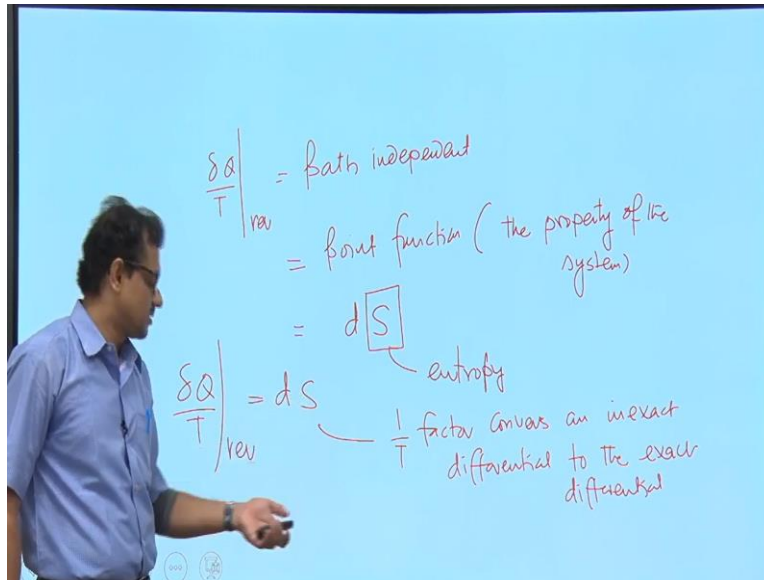 δQ/T |rev = Path independent
= Point function ( the property of the
system)
= d S
entropy
δQ/T |rev = d S
1/T factor convers an inexact
differential to the exact
differential